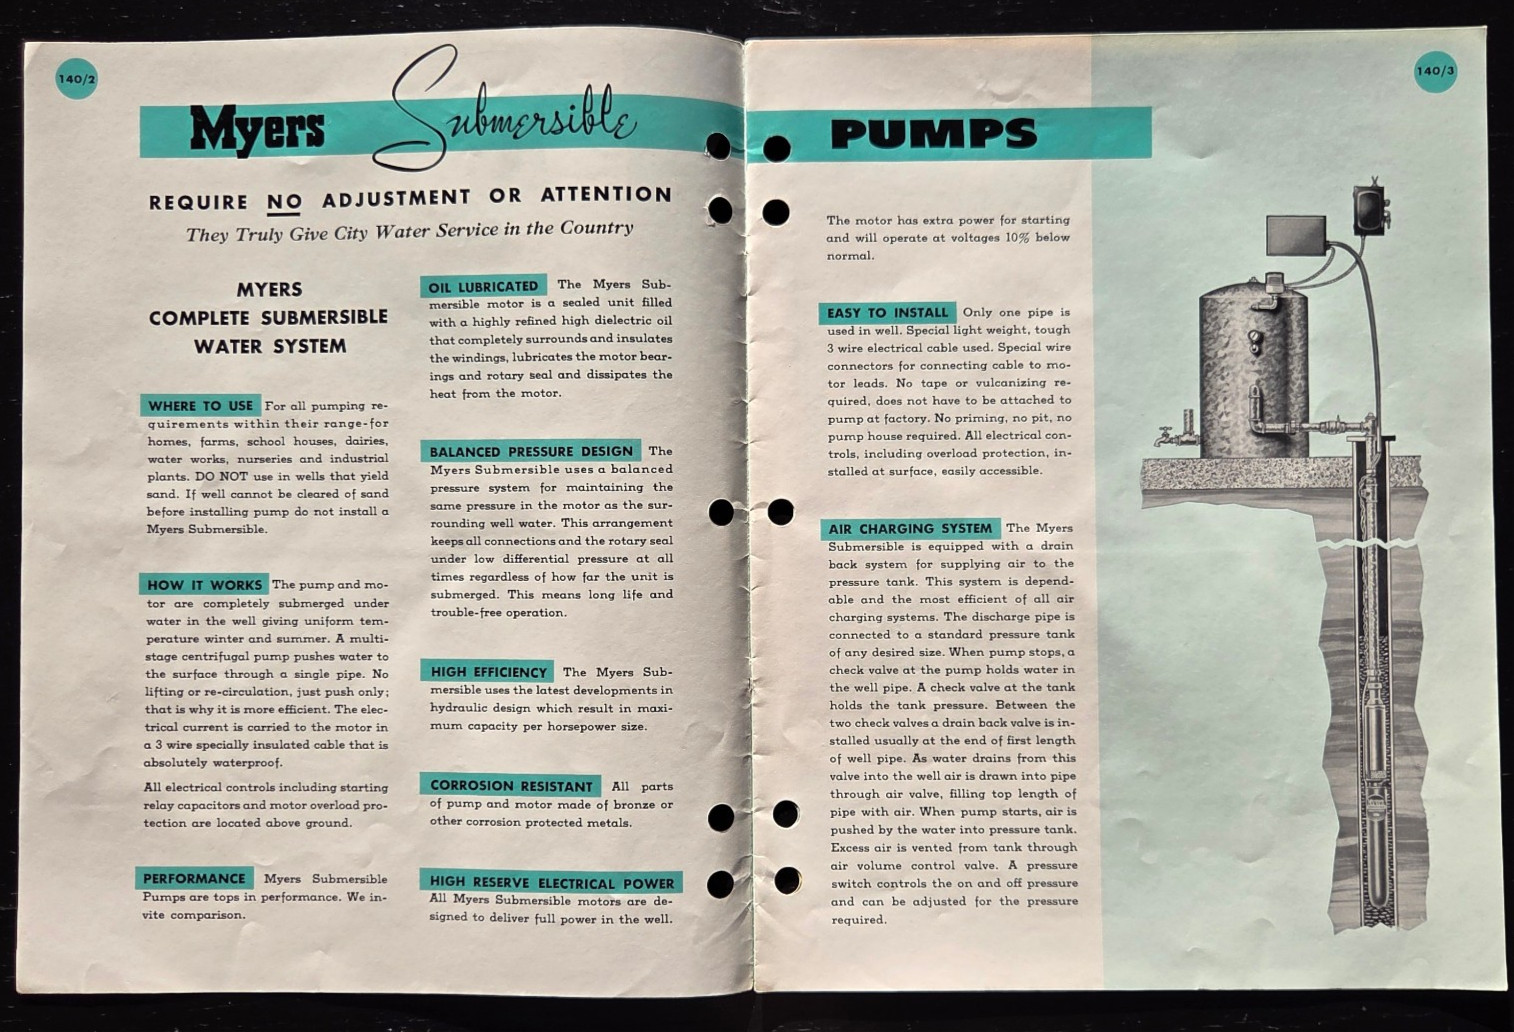 140/2
Myers Submersible
REQUIRE NO ADJUSTMENT OR ATTENTION
They Truly Give City Water Service in the Country
MYERS
COMPLETE SUBMERSIBLE
WATER SYSTEM
WHERE TO USE For all pumping re-
quirements within their range-for
homes, farms, school houses, dairies,
water works, nurseries and industrial
plants. DO NOT use in wells that yield
sand. If well cannot be cleared of sand
before installing pump do not install a
Myers Submersible.
HOW IT WORKS The pump and mo-
tor are completely submerged under
water in the well giving uniform tem-
perature winter and summer. A multi-
stage centrifugal pump pushes water to
the surface through a single pipe. No
lifting or re-circulation, just push only;
that is why it is more efficient. The elec-
trical current is carried to the motor in
a 3 wire specially insulated cable that is
absolutely waterproof.
All electrical controls including starting
relay capacitors and motor overload pro-
tection are located above ground.
PERFORMANCE Myers Submersible
Pumps are tops in performance. We in-
vite comparison.
OIL LUBRICATED The Myers Sub-
mersible motor is a sealed unit filled
with a highly refined high dielectric oil
that completely surrounds and insulates
the windings, lubricates the motor bear-
ings and rotary seal and dissipates the
heat from the motor.
BALANCED PRESSURE DESIGN The
Myers Submersible uses a balanced
pressure system for maintaining the
same pressure in the motor as the sur-
rounding well water. This arrangement
keeps all connections and the rotary seal
under low differential pressure at all
times regardless of how far the unit is
submerged. This means long life and
trouble-free operation.
HIGH EFFICIENCY The Myers Sub-
mersible uses the latest developments in
hydraulic design which result in maxi-
mum capacity per horsepower size.
CORROSION RESISTANT All parts
of pump and motor made of bronze or
other corrosion protected metals.
HIGH RESERVE ELECTRICAL POWER
All Myers Submersible motors are de-
signed to deliver full power in the well.
140/3
PUMPS
The motor has extra power for starting
and will operate at voltages 10% below
normal.
EASY TO INSTALL Only one pipe is
used in well. Special light weight, tough
3 wire electrical cable used. Special wire
connectors for connecting cable to mo-
tor leads. No tape or vulcanizing re-
quired, does not have to be attached to
pump at factory. No priming, no pit, no
pump house required. All electrical con-
trols, including overload protection, in-
stalled at surface, easily accessible.
AIR CHARGING SYSTEM The Myers
Submersible is equipped with a drain
back system for supplying air to the
pressure tank. This system is depend-
able and the most efficient of all air
charging systems. The discharge pipe is
connected to a standard pressure tank
of any desired size. When pump stops, a
check valve at the pump holds water in
the well pipe. A check valve at the tank
holds the tank pressure. Between the
two check valves a drain back valve is in-
stalled usually at the end of first length
of well pipe. As water drains from this
valve into the well air is drawn into pipe
through air valve, filling top length of
pipe with air. When pump starts, air is
pushed by the water into pressure tank.
Excess air is vented from tank through
air volume control valve. A pressure
switch controls the on and off pressure
and can be adjusted for the pressure
required.